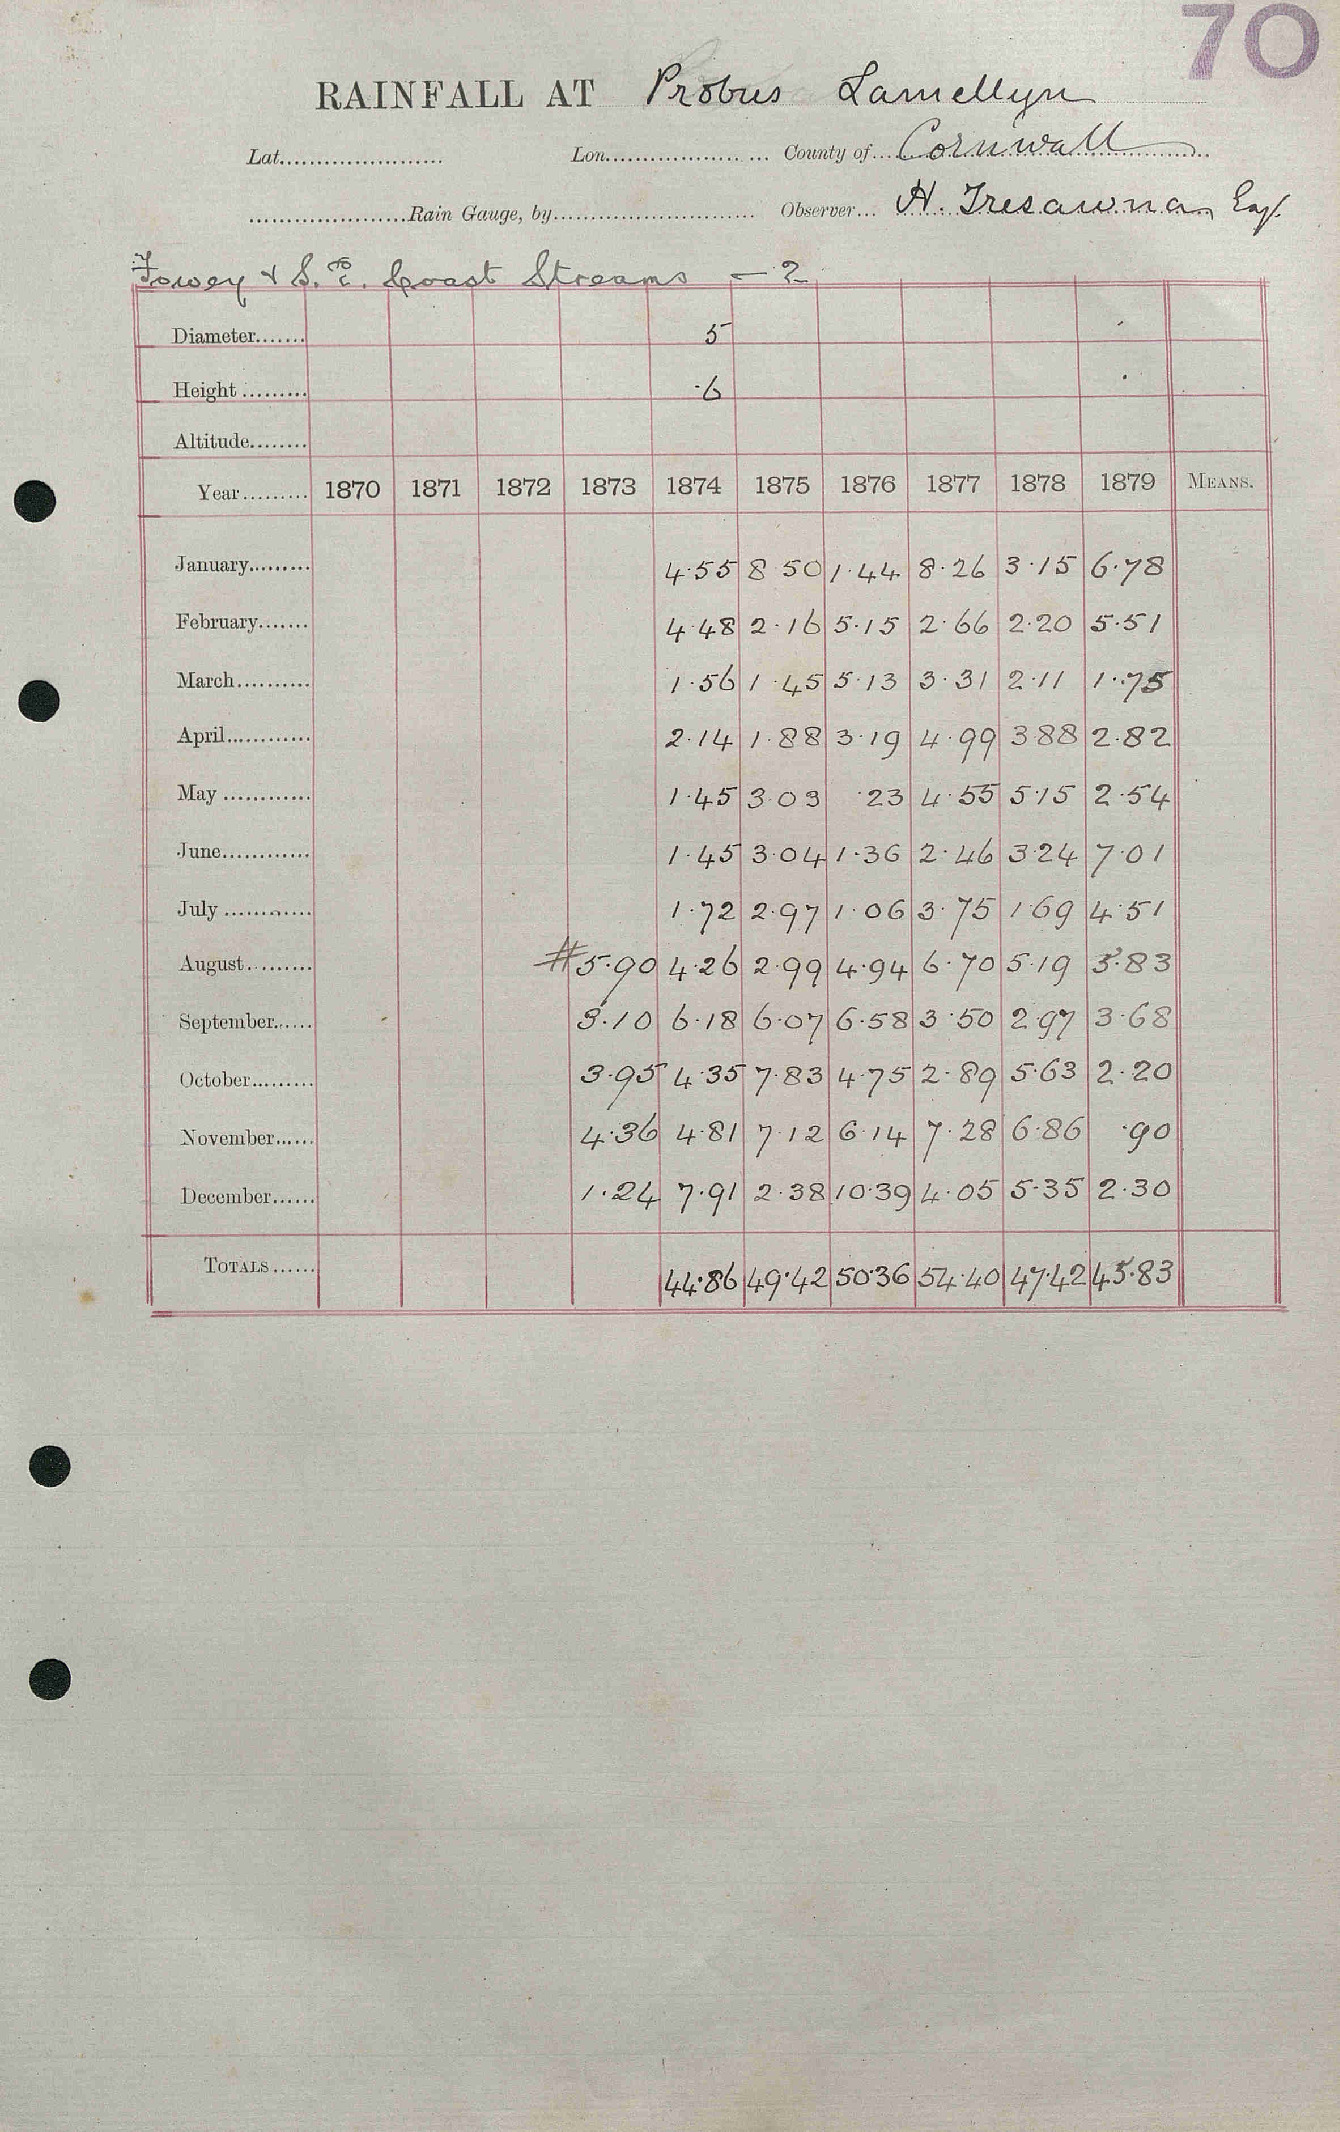 70
RAINFALL AT Probus Lamellyn
Lat...................... Lon...................... County of... Cornwall
......................Rain Gauge, by........................... Observer... H. Tresawna, Esq.
Fowey & S. E. Coast Streams - 2
Diameter....... 5
Height ......... ·6
Altitude........
Year......... 1870 1871 1872 1873 1874 1875 1876 1877 1878 1879 MEANS.
January......... 4·55 8·50 1·44 8·26 3·15 6·78
February....... 4·48 2·16 5·15 2·66 2·20 5·51
March.......... 1·56 1·45 5·13 3·31 2·11 1·75
April............ 2·14 1·88 3·19 4·99 3·88 2·82
May ............ 1·45 3·03 ·23 4·55 5·15 2·54
June............ 1·45 3·04 1·36 2·46 3·24 7·01
July ............ 1·72 2·97 1·06 3·75 1·69 4·51
August.......... #5·90 4·26 2·99 4·94 6·70 5·19 5·83
September...... 3·10 6·18 6·07 6·58 3·50 2·97 3·68
October......... 3·95 4·35 7·83 4·75 2·89 5·63 2·20
November...... 4·36 4·81 7·12 6·14 7·28 6·86 ·90
December...... 1·24 7·91 2·38 10·39 4·05 5·35 2·30
TOTALS...... 44·86 49·42 50·36 54·40 47·42 45·83